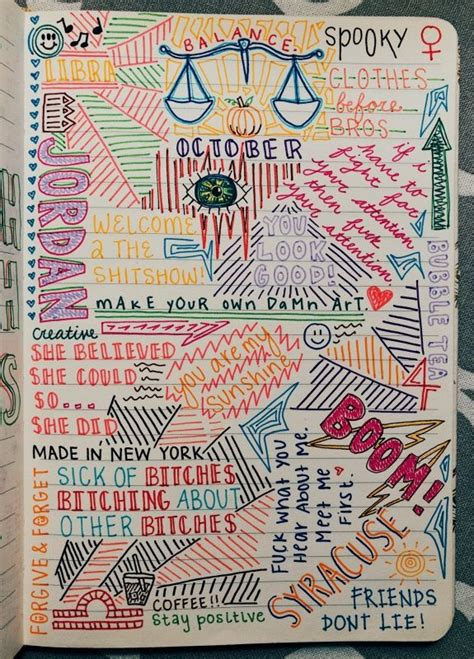 BALANCE
SPOOKY
LIBRA
CLOTHES
before
BROS
OCTOBER
JORDAN
if
have to
fight for
your attention
then fuck
your attention
WELCOME
2 THE
SHITSHOW!
YOU
LOOK
GOOD!
BUBBLE TEA
MAKE YOUR OWN DAMN ART.
Creative
SHE BELIEVED
SHE COULD
SO...
SHE DID
you are my
sunshine
BOOM!
MADE IN NEW YORK
SICK OF BITCHES
BITCHING ABOUT
OTHER BITCHES
FUCK WHAT YOU
HEAR ABOUT ME.
MEET ME
FIRST.
FORGIVE & FORGET
SYRACUSE
COFFEE!!
Stay positive
FRIENDS
DONT LIE!